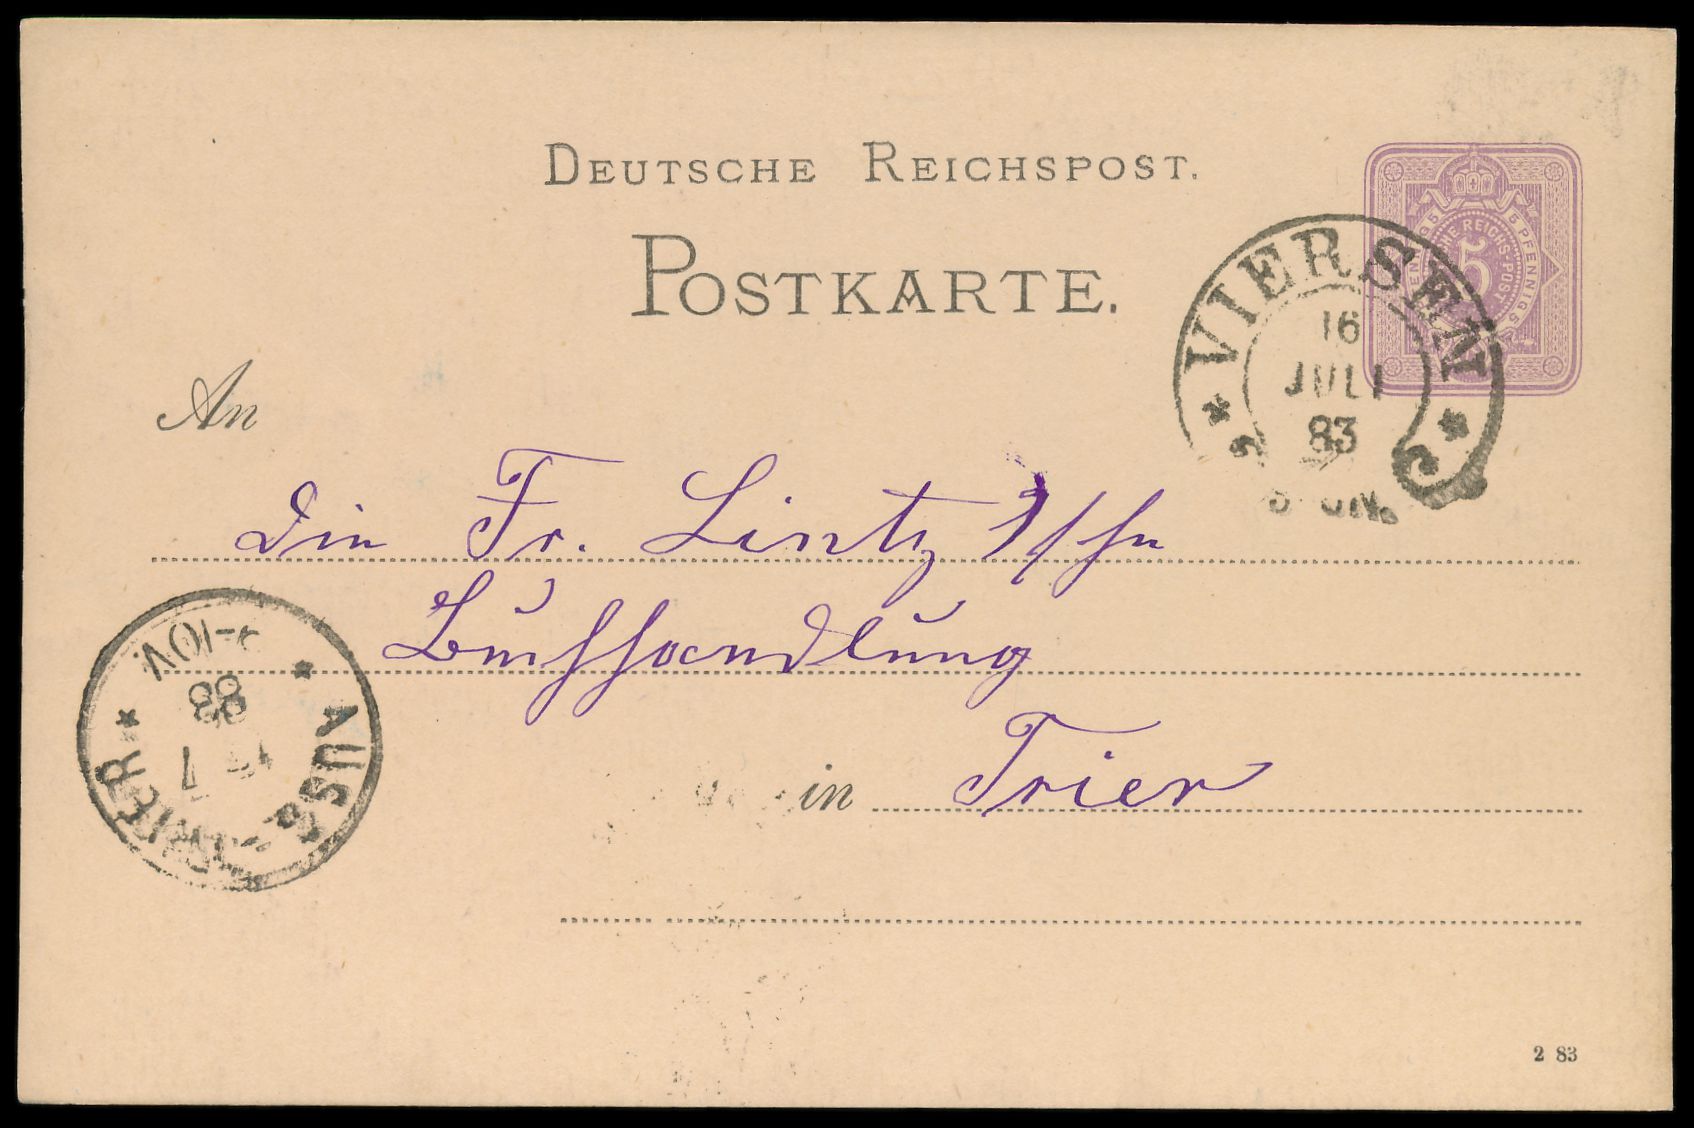 DEUTSCHE REICHSPOST.
POSTKARTE.
5 PFENNIG 5 PFENNIG
REICHS-POST
5
VIERSEN
16
JULI
83
An
Die Fr. Lintz'sche
Buchhandlung
in Trier
AUSG.
TRIER
7
83
9-10V.
2 83